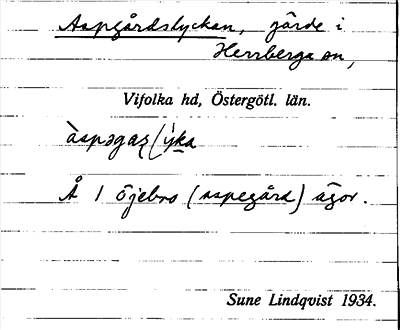 Aspgårdslyckan, gärde i
Herrberga sn,
Vifolka hd, Östergötl. län.
Å 1 Öjebro (Aspegård) ägor.
Sune Lindqvist 1934.